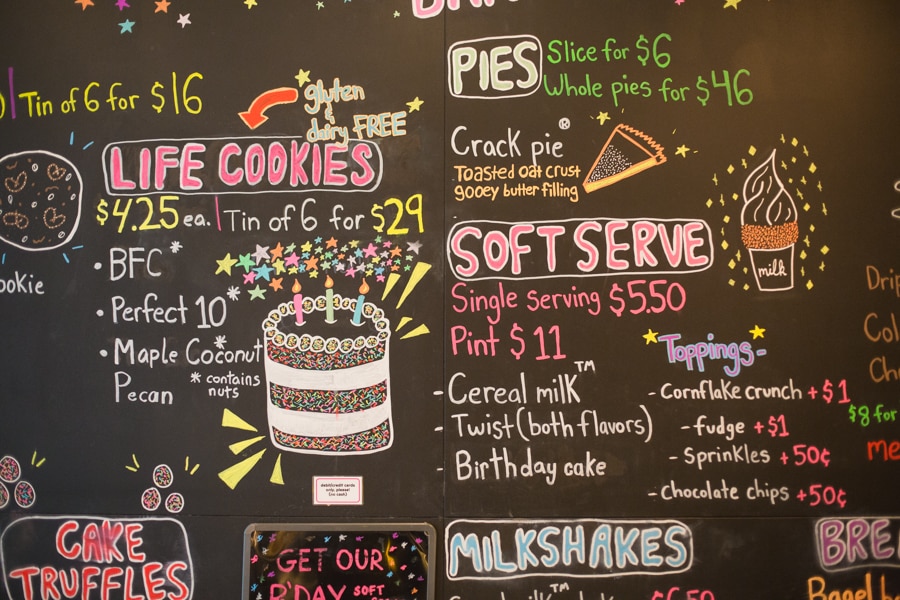 Tin of 6 for $16
gluten
&
dairy FREE
LIFE COOKIES
$4.25 ea. | Tin of 6 for $29
• BFC*
• Perfect 10*
• Maple Coconut*
Pecan
* contains
nuts
ookie
debit/credit cards
only, please!
(no cash)
CAKE
TRUFFLES
GET OUR
B'DAY SOFT
PIES
Slice for $6
Whole pies for $46
Crack pie®
Toasted oat crust
gooey butter filling
SOFT SERVE
Single serving $5.50
Pint $11
- Cereal milk™
- Twist (both flavors)
- Birthday cake
milk
Toppings-
- Cornflake crunch +$1
- fudge +$1
- Sprinkles +50¢
- Chocolate chips +50¢
MILKSHAKES
Drip
Col
Ch
$8 for
me
BRE
Bagel b